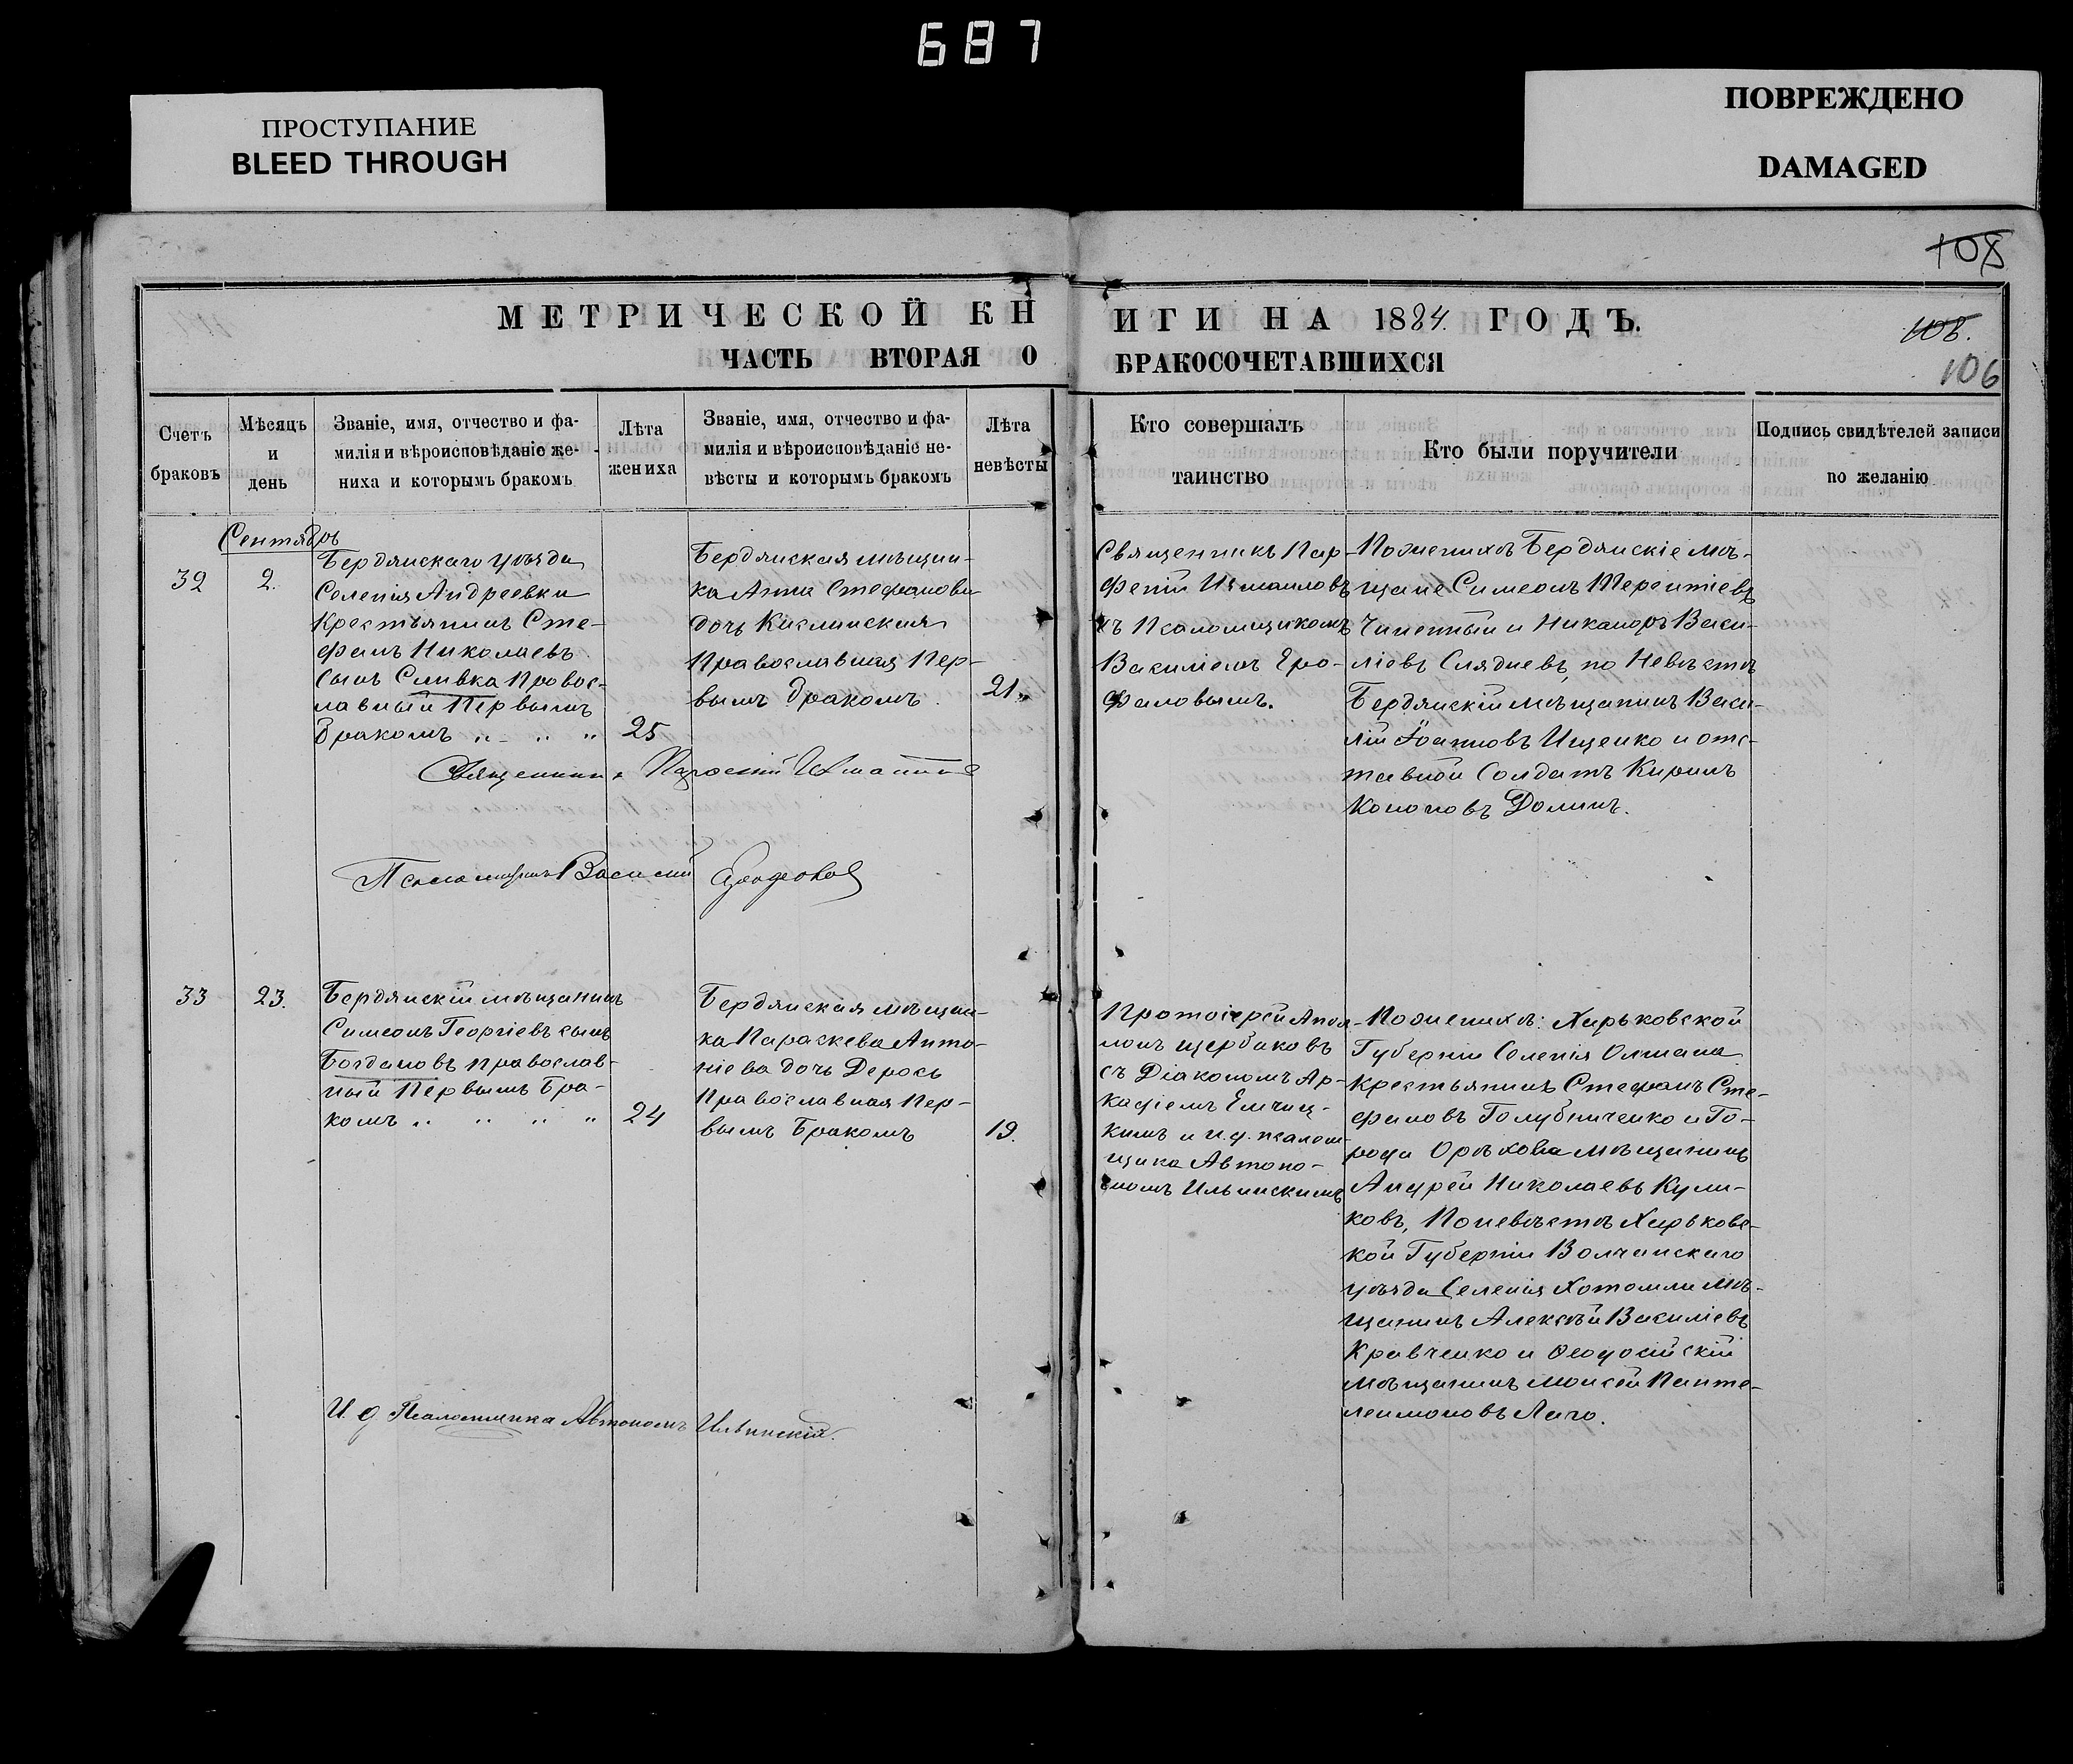 687
ПРОСТУПАНИЕ
BLEED THROUGH
ПОВРЕЖДЕНО
DAMAGED
108
МЕТРИЧЕСКОЙ КН
ИГИ НА 1884. ГОДЪ.
108.
106
ЧАСТЬ ВТОРАЯ О
БРАКОСОЧЕТАВШИХСЯ
Счетъ
браковъ
Мѣсяцъ
и
день
Званіе, имя, отчество и фа-
милія и вѣроисповѣданіе же-
ниха и которымъ бракомъ
Лѣта
жениха
Званіе, имя, отчество и фа-
милія и вѣроисповѣданіе не-
вѣсты и которымъ бракомъ
Лѣта
невѣсты
Кто совершалъ
таинство
Кто были поручители
Подпись свидѣтелей записи
по желанію
Сентябрь
32
2.
Бердянскаго уѣзда
Селенія Андреевки
Крестьянинъ Сте-
фанъ Николаевъ
сынъ Сливка Правос-
лавный Первымъ
Бракомъ
25
Бердянская мѣщан-
ка Анна Стефанова
дочь Кислинская
Православная Пер-
вымъ бракомъ.
21
Священникъ Пар-
феній Измаиловъ
съ Псаломщикомъ
Василіемъ Еро-
фаловымъ.
По женихѣ Бердянскіе мѣ-
щане Симеонъ Терентіевъ
Чиненный и Никаноръ Васи-
ліевъ Слядневъ, по Невѣстѣ
Бердянскій мѣщанинъ Васи-
лій Іоанновъ Ищенко и отс-
тавной Солдатъ Кирилъ
Кононовъ Долинъ.
Священникъ Парфеній Измаиловъ
Псаломщикъ Василій
33
23.
Бердянскій мѣщанинъ
Симеонъ Георгіевъ сынъ
Богдановъ православ-
ный Первымъ Бра-
комъ
24
Бердянская мѣщан-
ка Параскева Анто-
ніева дочь Дерось
Православная Пер-
вымъ Бракомъ
19.
Протоіерей Апол-
лонъ Щербаковъ
съ Діакономъ Ар-
кадіемъ Емчиц-
кимъ и и.д. псалом-
щика Автоно-
момъ Ильинскимъ
По женихѣ: Харьковской
Губерніи Селенія Олшана
Крестьянинъ Стефанъ Сте-
фановъ Голубниченко и Го-
рода Орѣхова мѣщанинъ
Андрей Николаевъ Кули-
ковъ, По невѣстѣ Харьковс-
кой Губерніи Волчанскаго
уѣзда Селенія Хотомли мѣ-
щанинъ Алексѣй Василіевъ
Кравченко и Ѳеодосійскій
мѣщанинъ Моисей Панте-
леимоновъ Лаго.
И. д Псаломщика Автономъ Ильинскій.